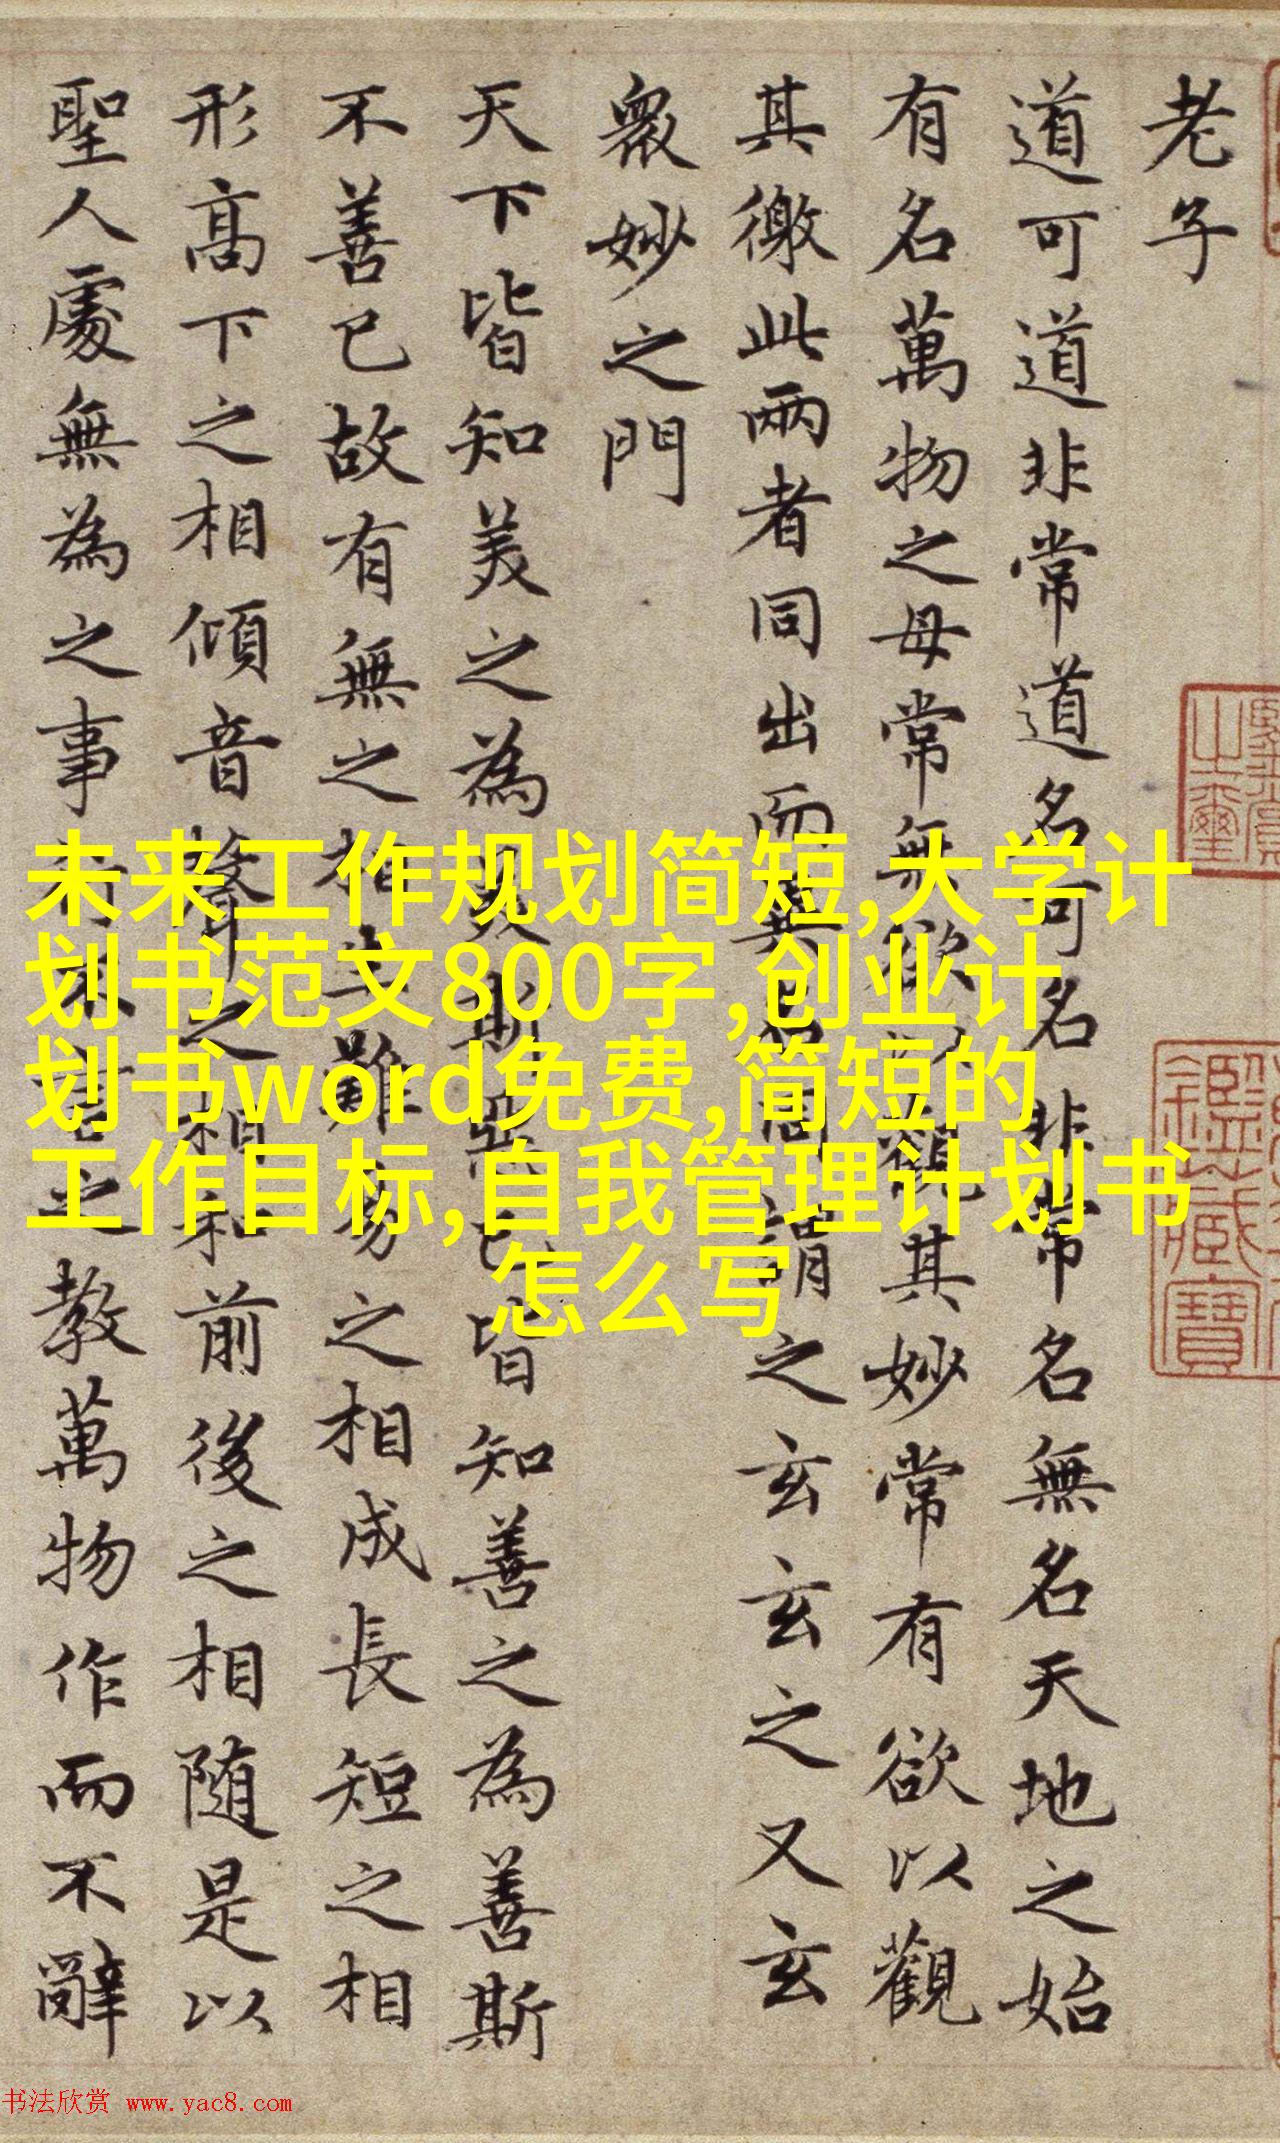 老子
道可道非常道名可名非常名無名天地之始
有名萬物之母常無欲以觀其妙常有欲以觀
其徼此兩者同出而異名同謂之玄玄之又玄
衆妙之門
天下皆知美之為美斯惡已皆知善之為善斯
不善已故有無之相生難易之相成長短之相
形高下之相傾音聲之相和前後之相随是以
聖人處無為之事行不言之教萬物作而不辭
鑑藏寶
未来工作规划简短,大学计
划书范文800字,创业计
划书word免费,简短的
工作目标,自我管理计划书
怎么写
书法欣赏 www.yac8.com